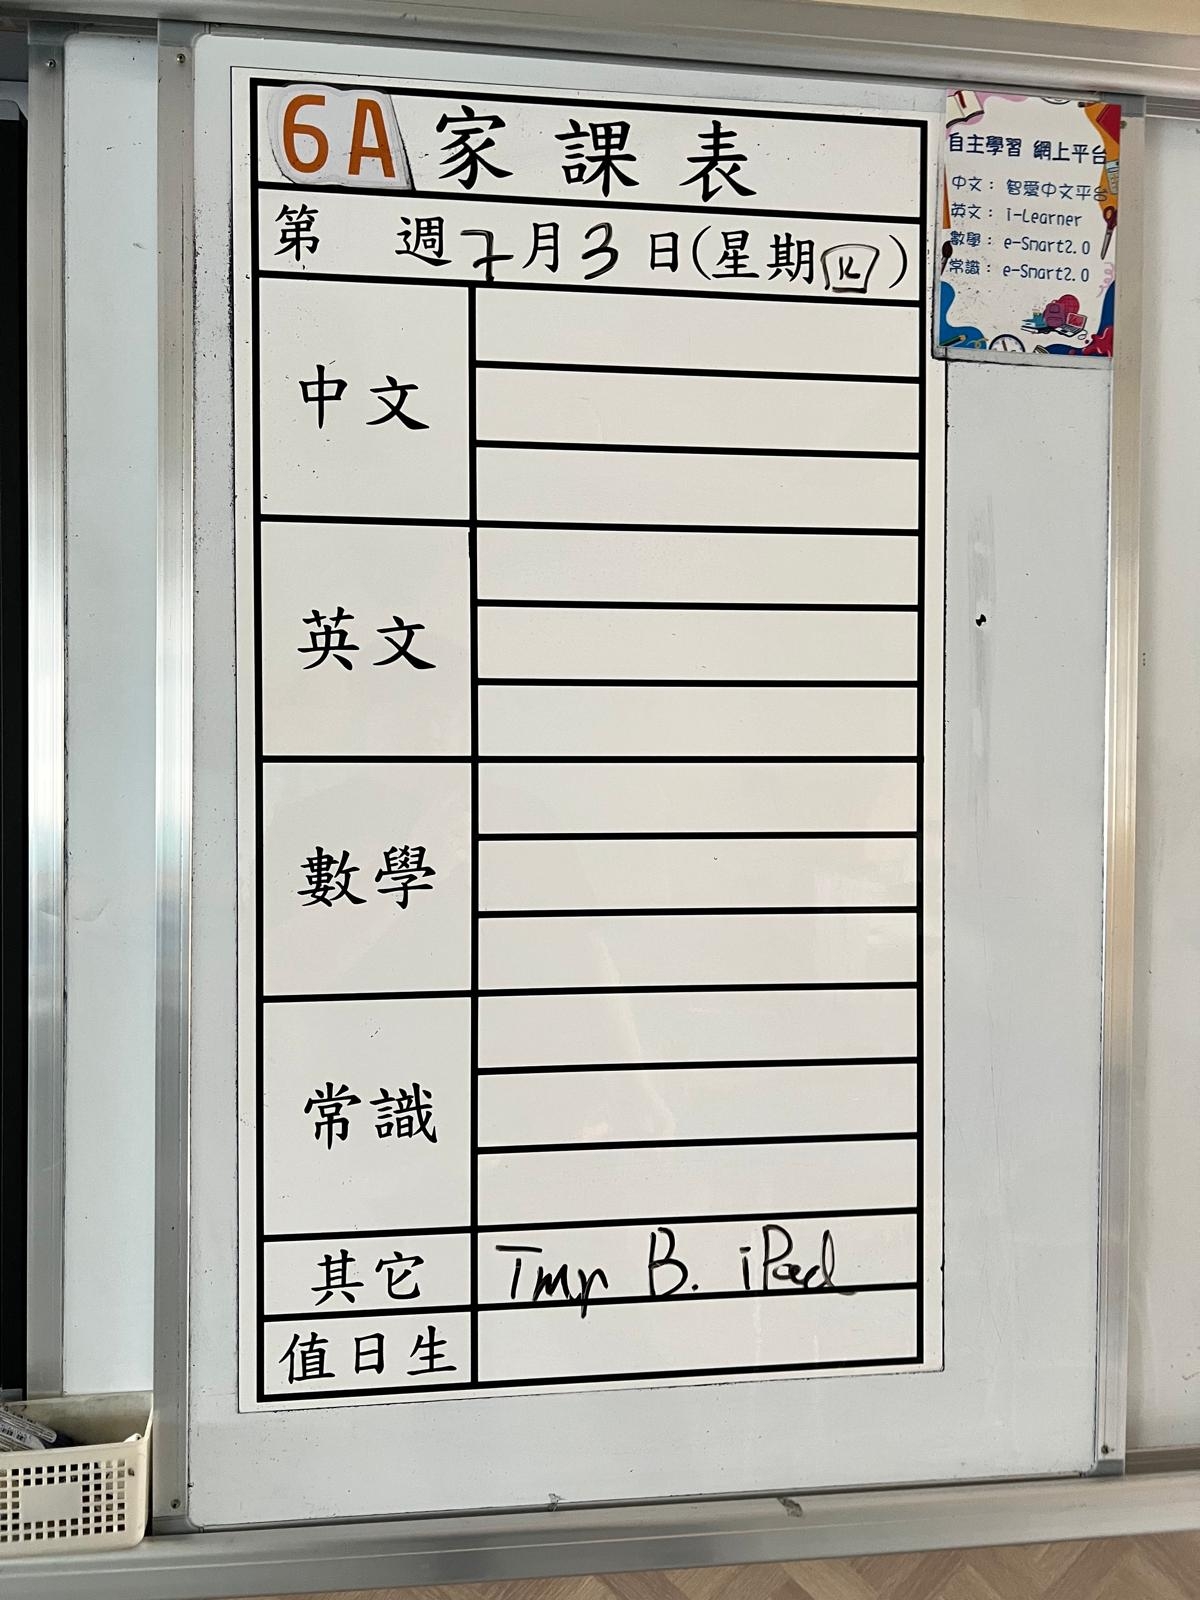 6A 家課表
第 週 7月3日(星期四)
中文
英文
數學
常識
其它 Tmr B. iPad
值日生
自主學習 網上平台
中文： 智愛中文平台
英文： i-Learner
數學： e-Smart2.0
常識： e-Smart2.0